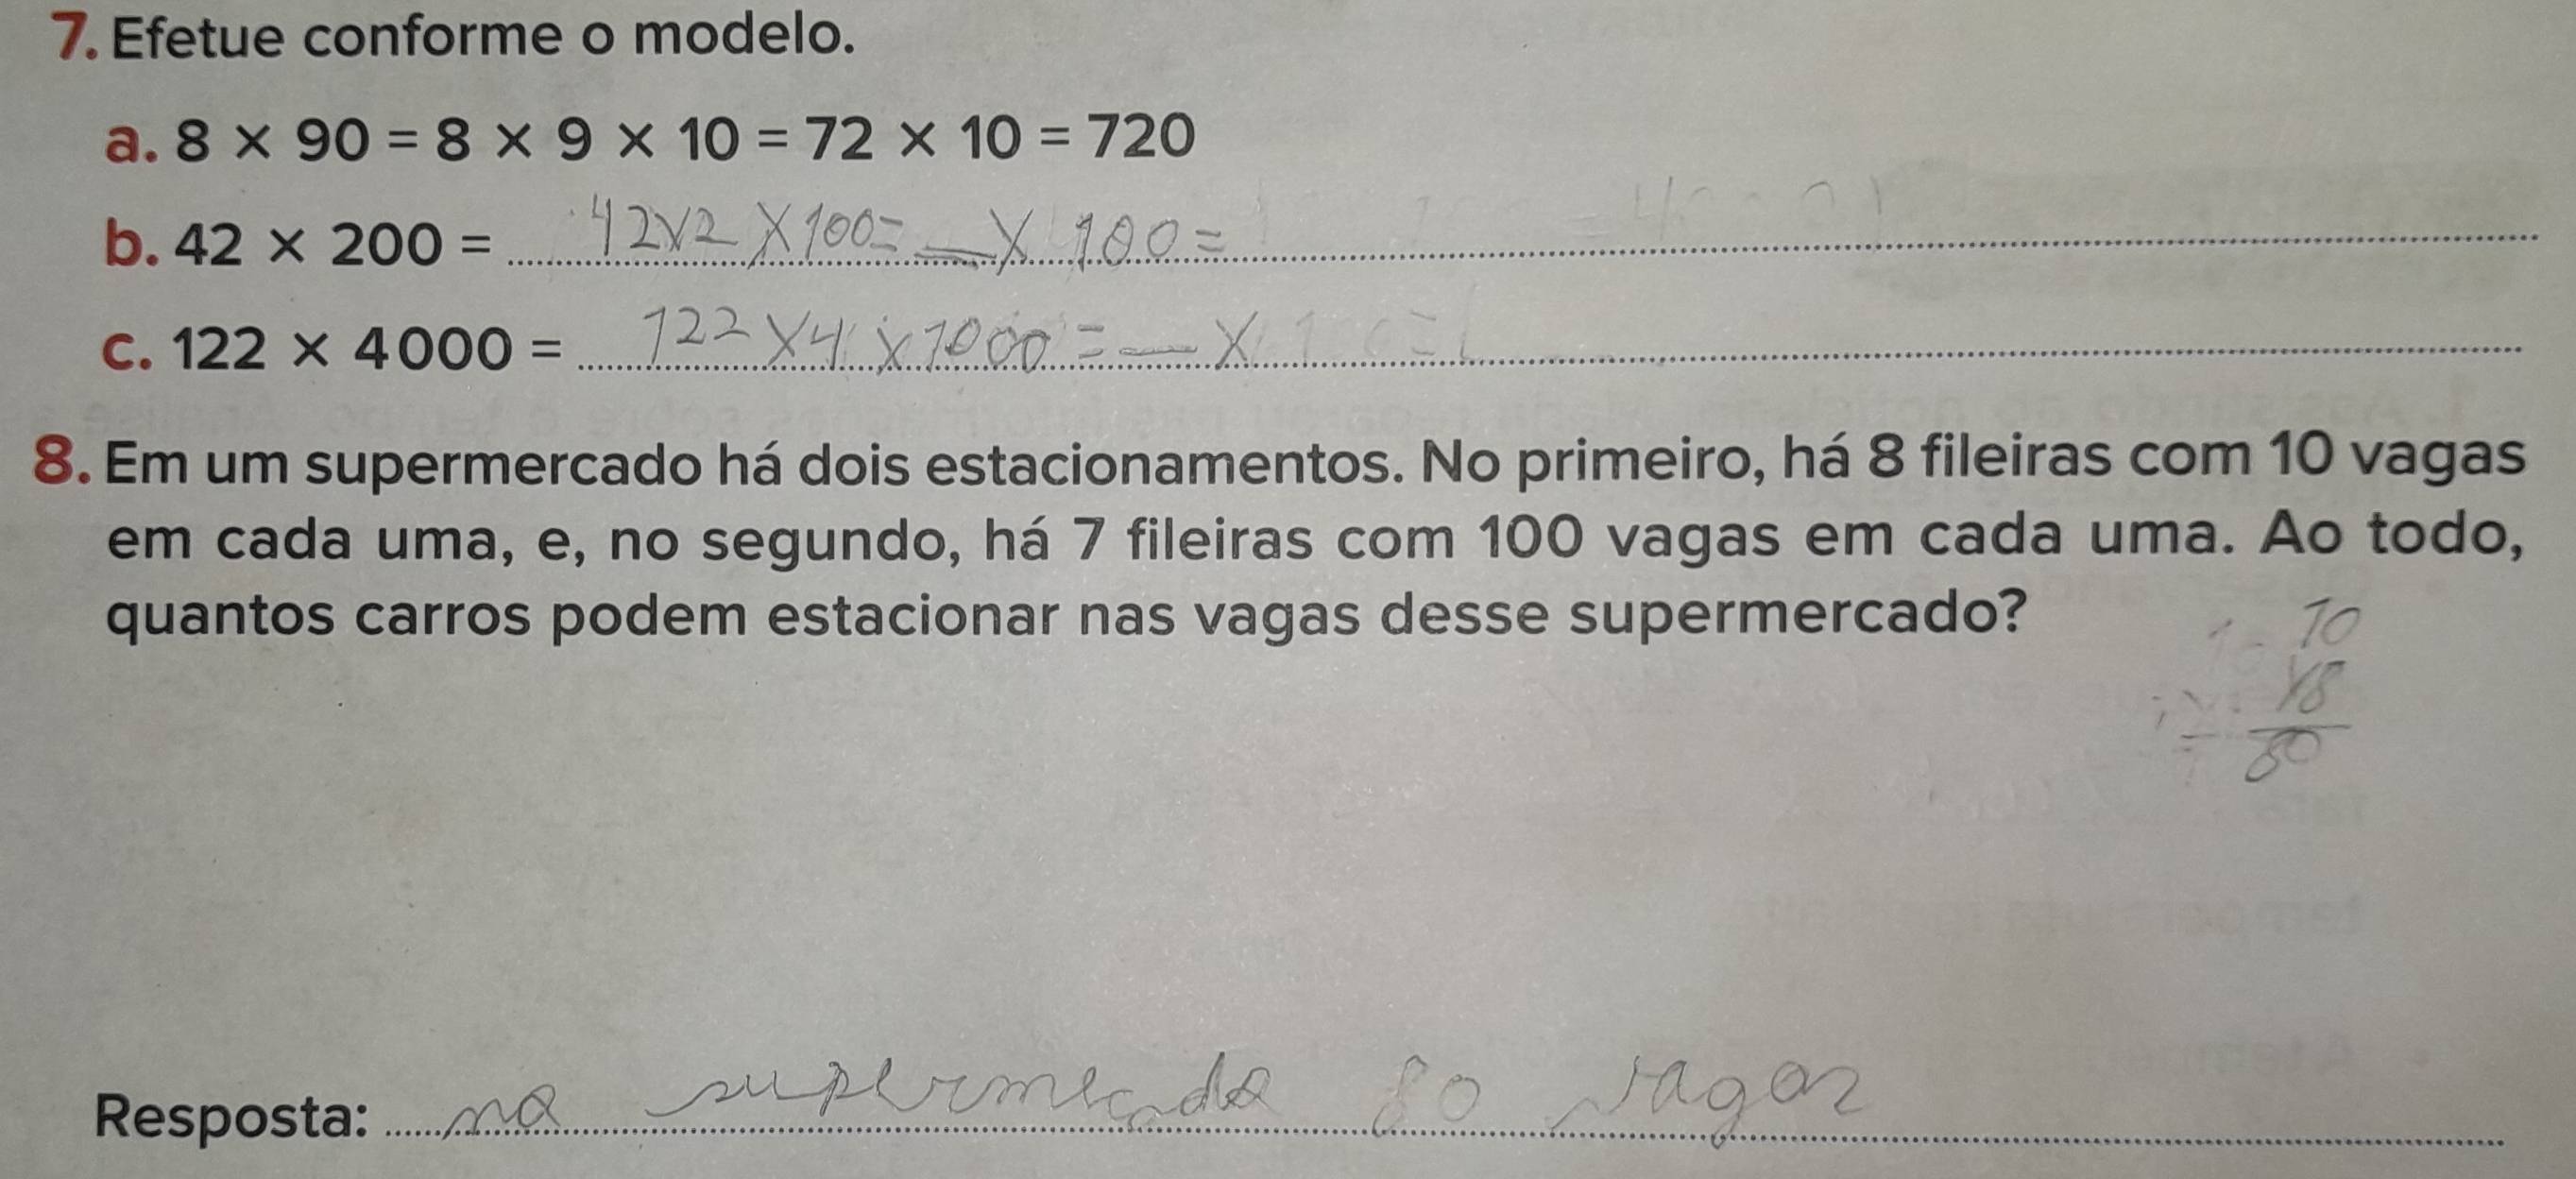 7. Efetue conforme o modelo.
a. 8 × 90 = 8 × 9 × 10 = 72 × 10 = 720
b. 42 × 200 = 42x2 x 100= __ x 100=
c. 122 × 4000 = 122 x 4 x 1000 = __ x
8. Em um supermercado há dois estacionamentos. No primeiro, há 8 fileiras com 10 vagas
em cada uma, e, no segundo, há 7 fileiras com 100 vagas em cada uma. Ao todo,
quantos carros podem estacionar nas vagas desse supermercado?
10
x8
80
Resposta: no supermecado 80 vagas